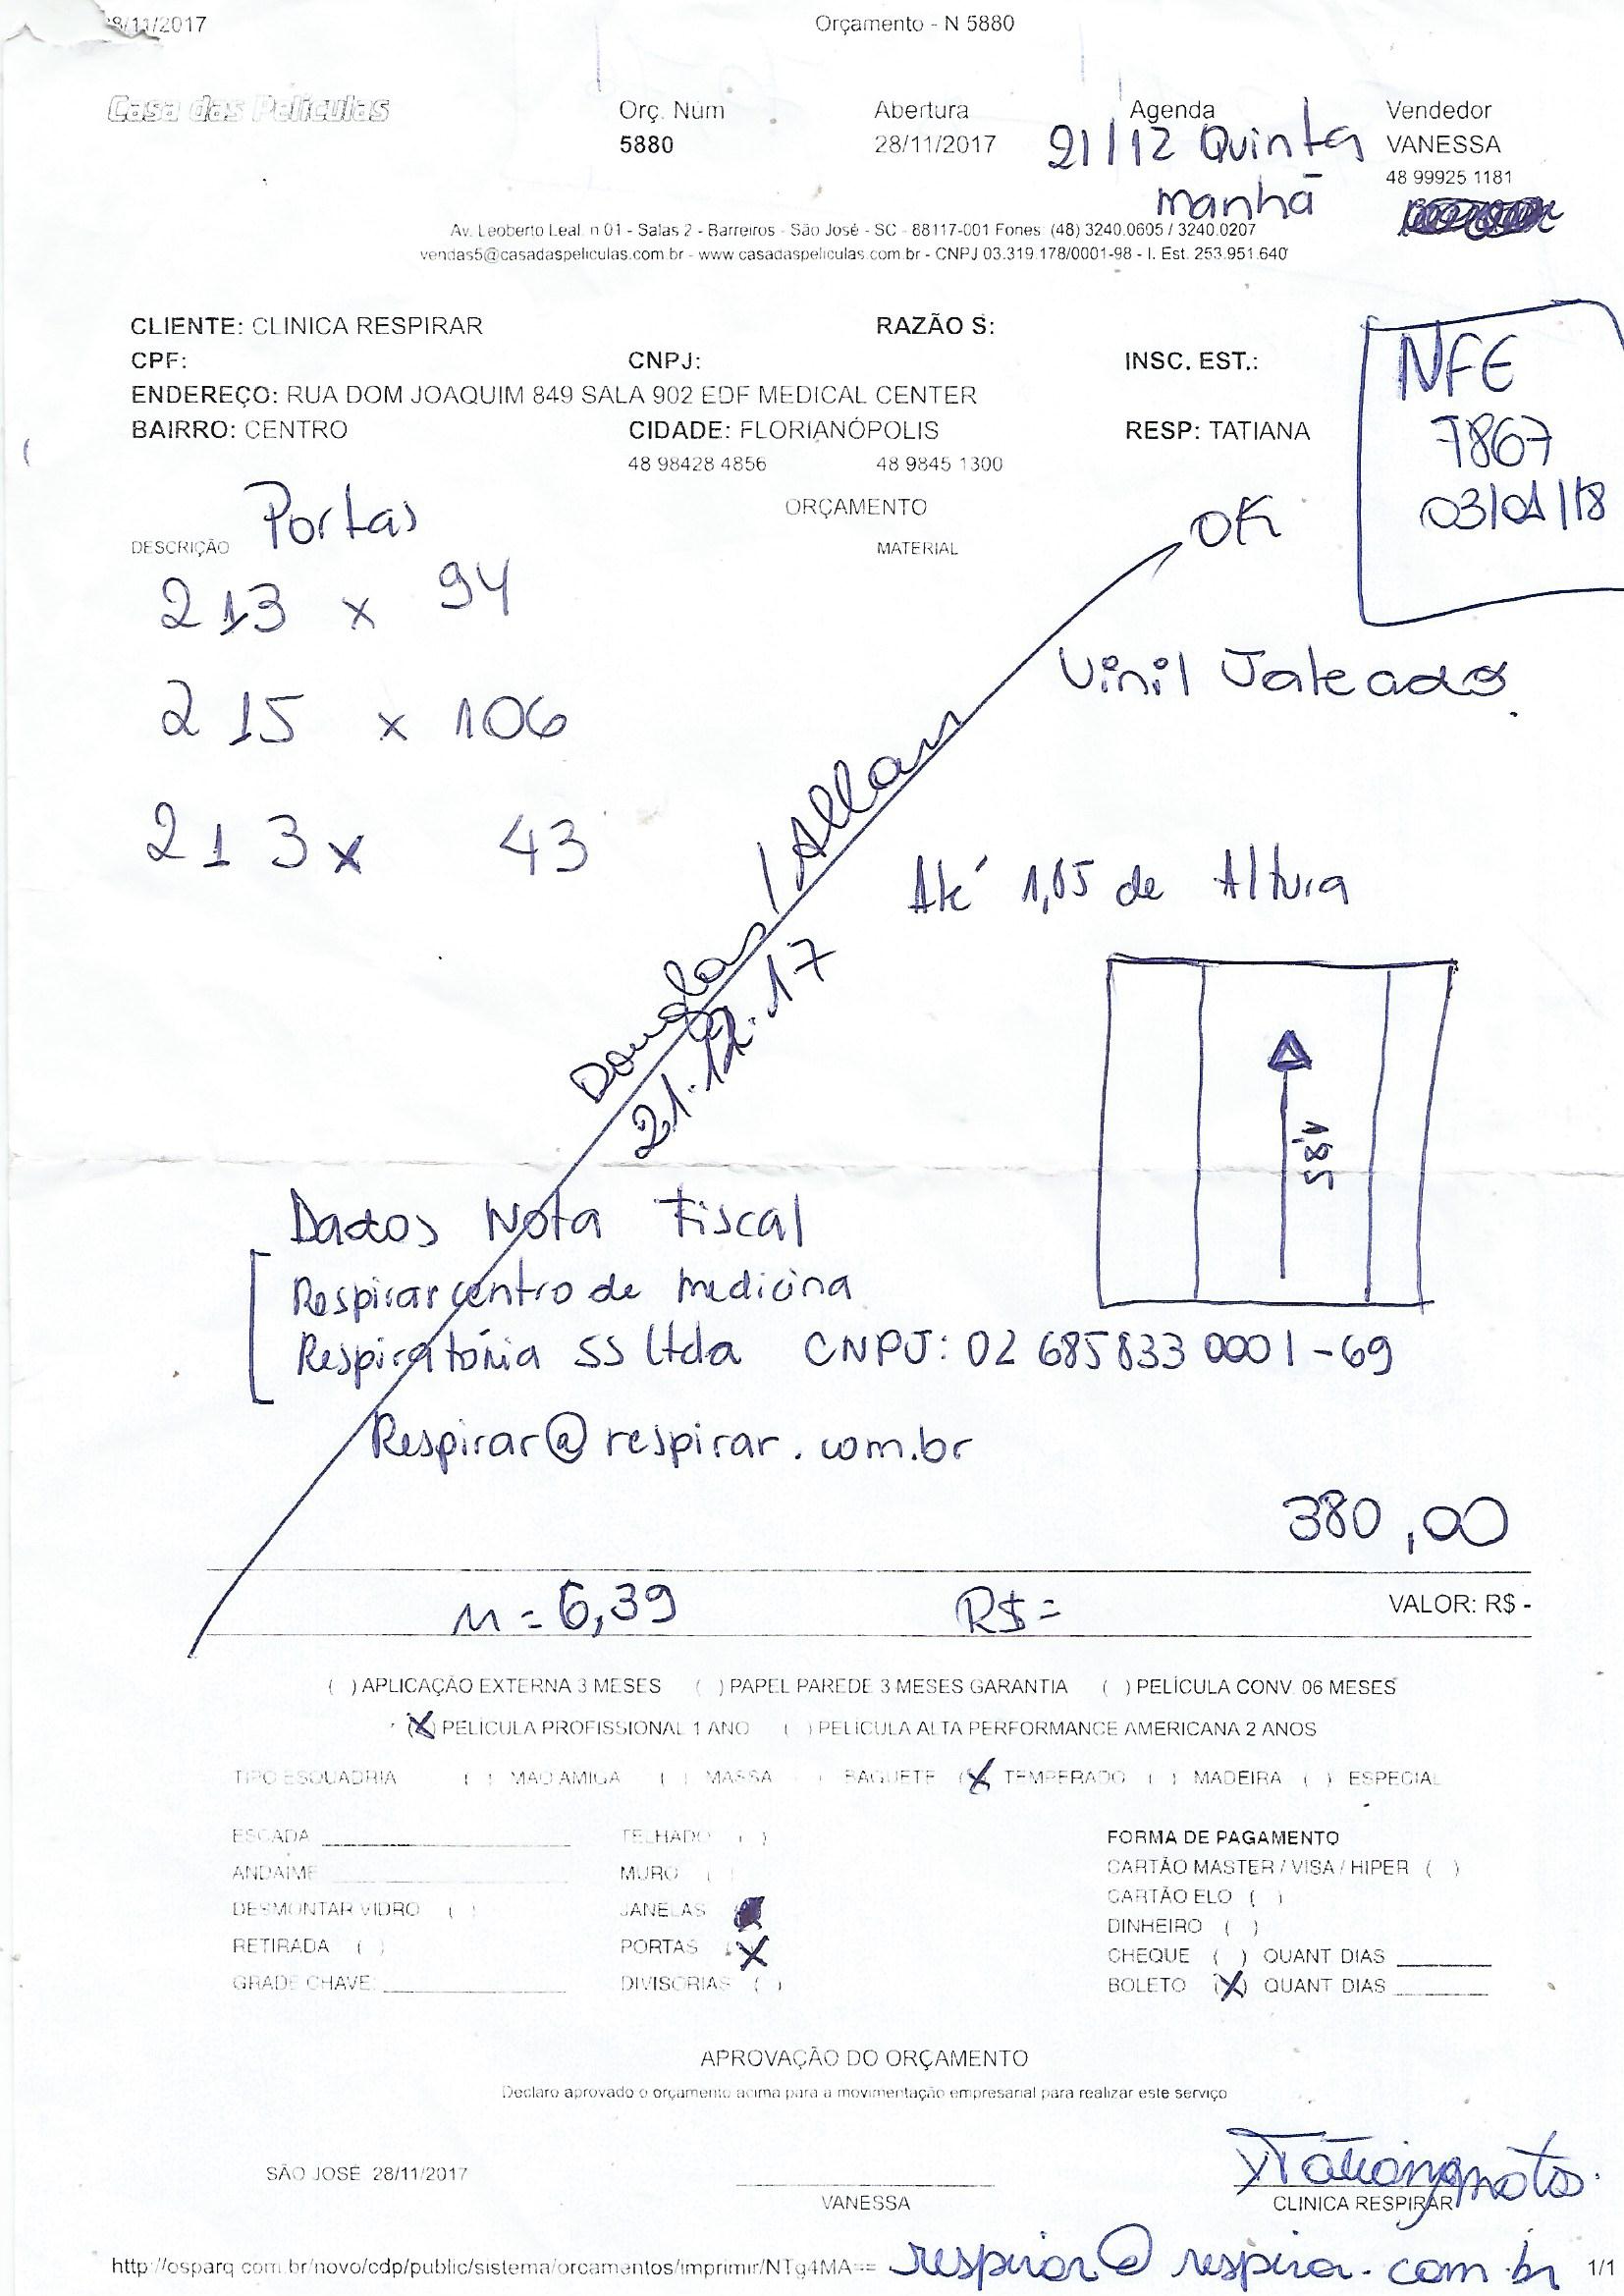 28/11/2017 Orçamento - N 5880
Casa das Películas
Orç. Núm Abertura Agenda Vendedor
5880 28/11/2017 21/12 Quinta VANESSA
manhã 48 99925 1181
Av. Leoberto Leal, n 01 - Salas 2 - Barreiros - São José - SC - 88117-001 Fones: (48) 3240.0605 / 3240.0207
vendas5@casadaspeliculas.com.br - www.casadaspeliculas.com.br - CNPJ 03.319.178/0001-98 - I. Est. 253.951.640
CLIENTE: CLINICA RESPIRAR RAZÃO S:
CPF: CNPJ: INSC. EST.:
ENDEREÇO: RUA DOM JOAQUIM 849 SALA 902 EDF MEDICAL CENTER
BAIRRO: CENTRO CIDADE: FLORIANÓPOLIS RESP: TATIANA
48 98428 4856 48 9845 1300
NFE
7867
03/01/18
ORÇAMENTO
DESCRIÇÃO Portas MATERIAL
OK
213 x 94
Vinil Jateado
215 x 106
213 x 43
Até 1,85 de Altura
Douglas / Allan
21.12.17
1,85
Dados Nota Fiscal
Respirar centro de medicina
Respiratória SS Ltda CNPJ: 02 685833 0001-69
Respirar@respirar.com.br
380,00
m = 6,39 R$ = VALOR: R$ -
( ) APLICAÇÃO EXTERNA 3 MESES ( ) PAPEL PAREDE 3 MESES GARANTIA ( ) PELÍCULA CONV. 06 MESES
(X) PELÍCULA PROFISSIONAL 1 ANO ( ) PELÍCULA ALTA PERFORMANCE AMERICANA 2 ANOS
TIPO ESQUADRIA ( ) MÃO AMIGA ( ) MASSA ( ) BAGUETE (X) TEMPERADO ( ) MADEIRA ( ) ESPECIAL
ESCADA ____ TELHADO ( ) FORMA DE PAGAMENTO
ANDAIME ____ MURO ( ) CARTÃO MASTER / VISA / HIPER ( )
DESMONTAR VIDRO ( ) JANELAS CARTÃO ELO ( )
DINHEIRO ( )
RETIRADA ( ) PORTAS (X) CHEQUE ( ) QUANT DIAS ____
GRADE CHAVE: ____ DIVISÓRIAS ( ) BOLETO (X) QUANT DIAS ____
APROVAÇÃO DO ORÇAMENTO
Declaro aprovado o orçamento acima para a movimentação empresarial para realizar este serviço
SÃO JOSÉ 28/11/2017
VANESSA CLINICA RESPIRAR
respirar@respirar.com.br
http://osparq.com.br/novo/cdp/public/sistema/orcamentos/imprimir/NTg4MA== 1/1